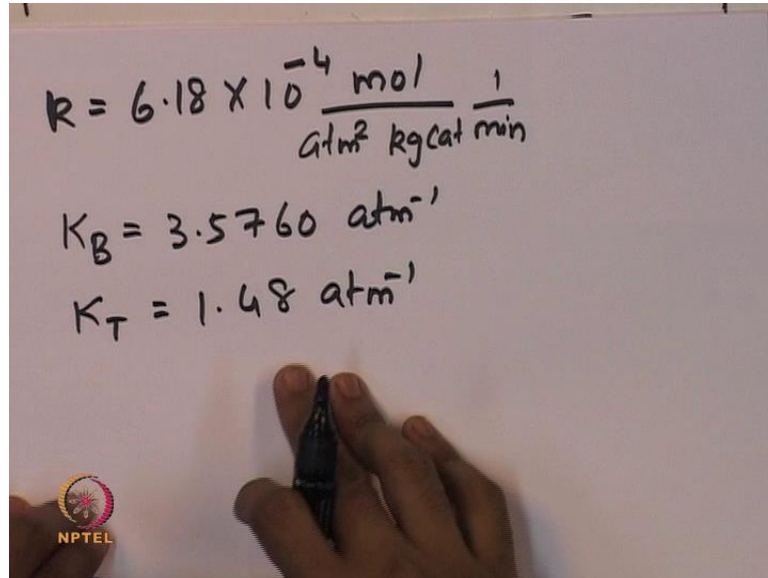 k = 6.18 X 10^-4 mol / atm² kgcat 1 / min
K_B = 3.5760 atm^-1
K_T = 1.48 atm^-1
NPTEL